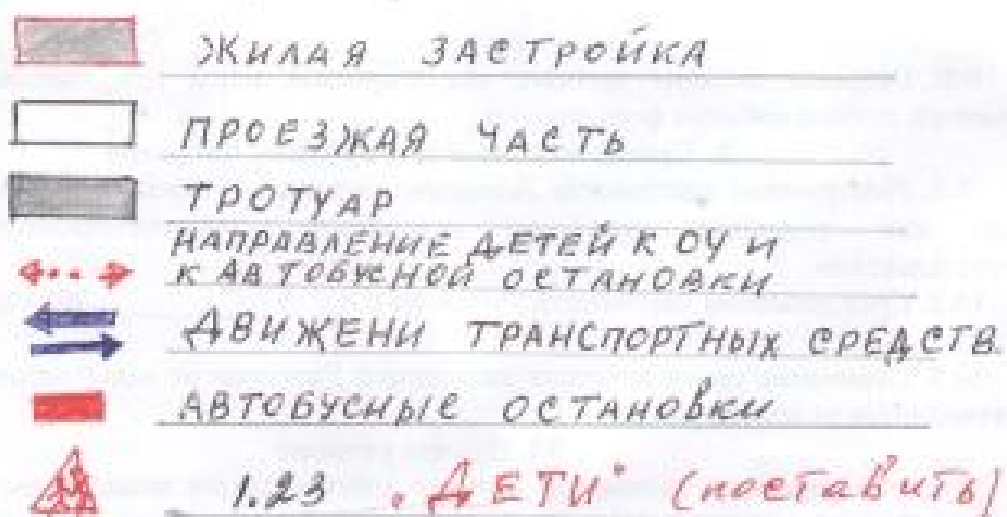 ЖИЛАЯ ЗАСТРОЙКА
ПРОЕЗЖАЯ ЧАСТЬ
ТРОТУАР
НАПРАВЛЕНИЕ ДЕТЕЙ К ОУ И
К АВТОБУСНОЙ ОСТАНОВКИ
ДВИЖЕНИ ТРАНСПОРТНЫХ СРЕДСТВ
АВТОБУСНЫЕ ОСТАНОВКИ
1.23 "ДЕТИ" (поставить)